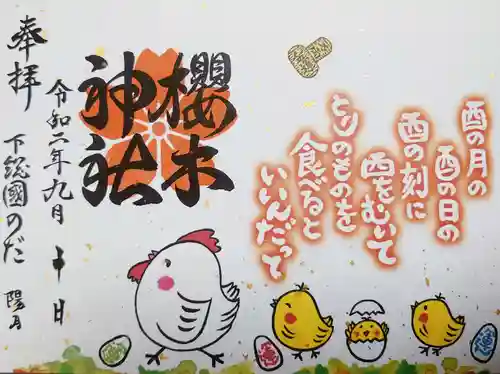 酉の月の
酉の日の
酉の刻に
西をむいて
とりのものを
食べると
いいんだって
櫻木
神社
令和二年九月十日
奉拝
下総國のだ